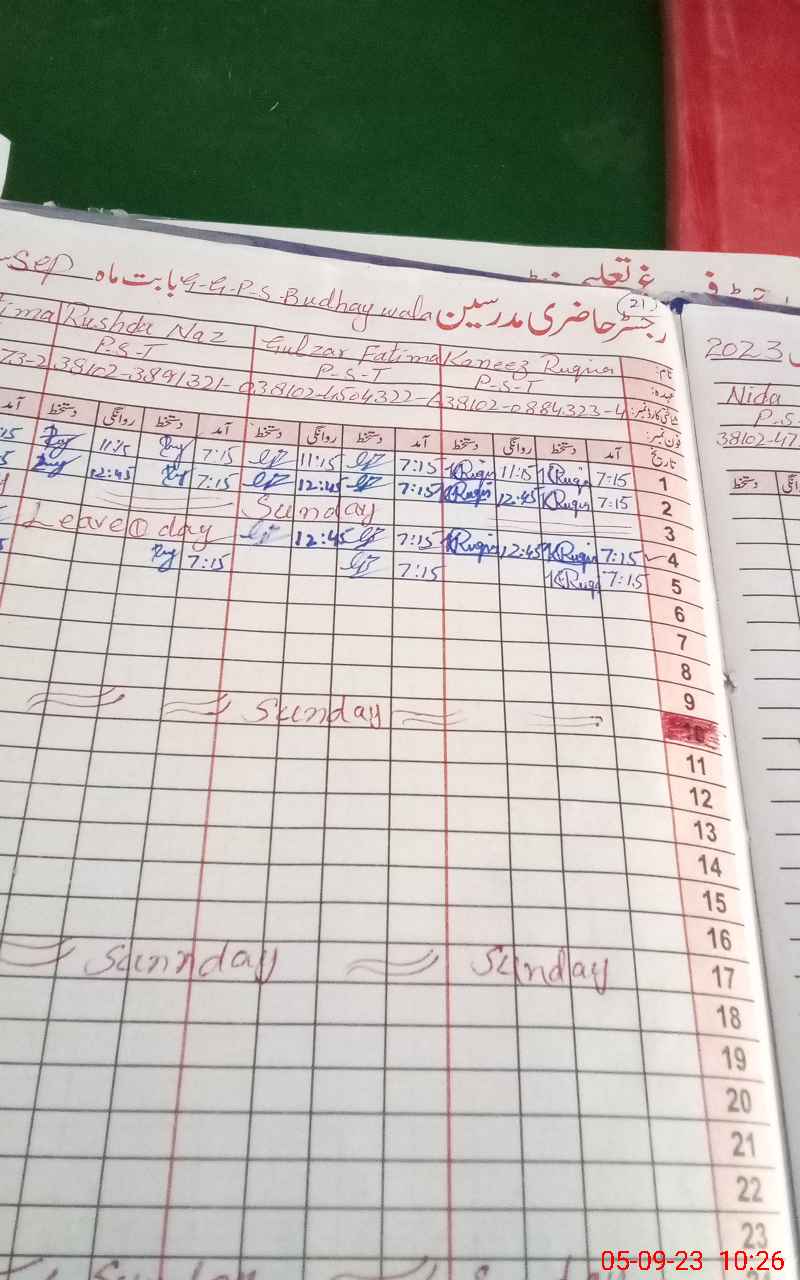 رجسٹر حاضری مدرسین G.G.P.S. Budhay wala بابت ماہ Sep
21
2023
نام: Kaneez Ruqia Gulzar Fatima Rushda Naz
عہدہ: P-S-T P-S-T P-S-T
شناختی کارڈ نمبر: 38102-0884323-4 38102-4504322- 38102-3891321-0
فون نمبر:
Nida
P.S.
38102-47
تاریخ آمد دستخط روانگی دستخط آمد دستخط روانگی دستخط آمد دستخط روانگی دستخط آمد
1 7:15 KRuqia 11:15 KRuqia 7:15 11:15 7:15 11:15
2 7:15 KRuqia 12:45 KRuqia 7:15 12:45 7:15 12:45
3 Sunday
4 7:15 KRuqia 12:45 KRuqia 7:15 12:45 Leave ① day
5 7:15 KRuqia 7:15 7:15
6
7
8
9
10 Sunday
11
12
13
14
15
16
17 Sunday Sunday
18
19
20
21
22
23
05-09-23 10:26